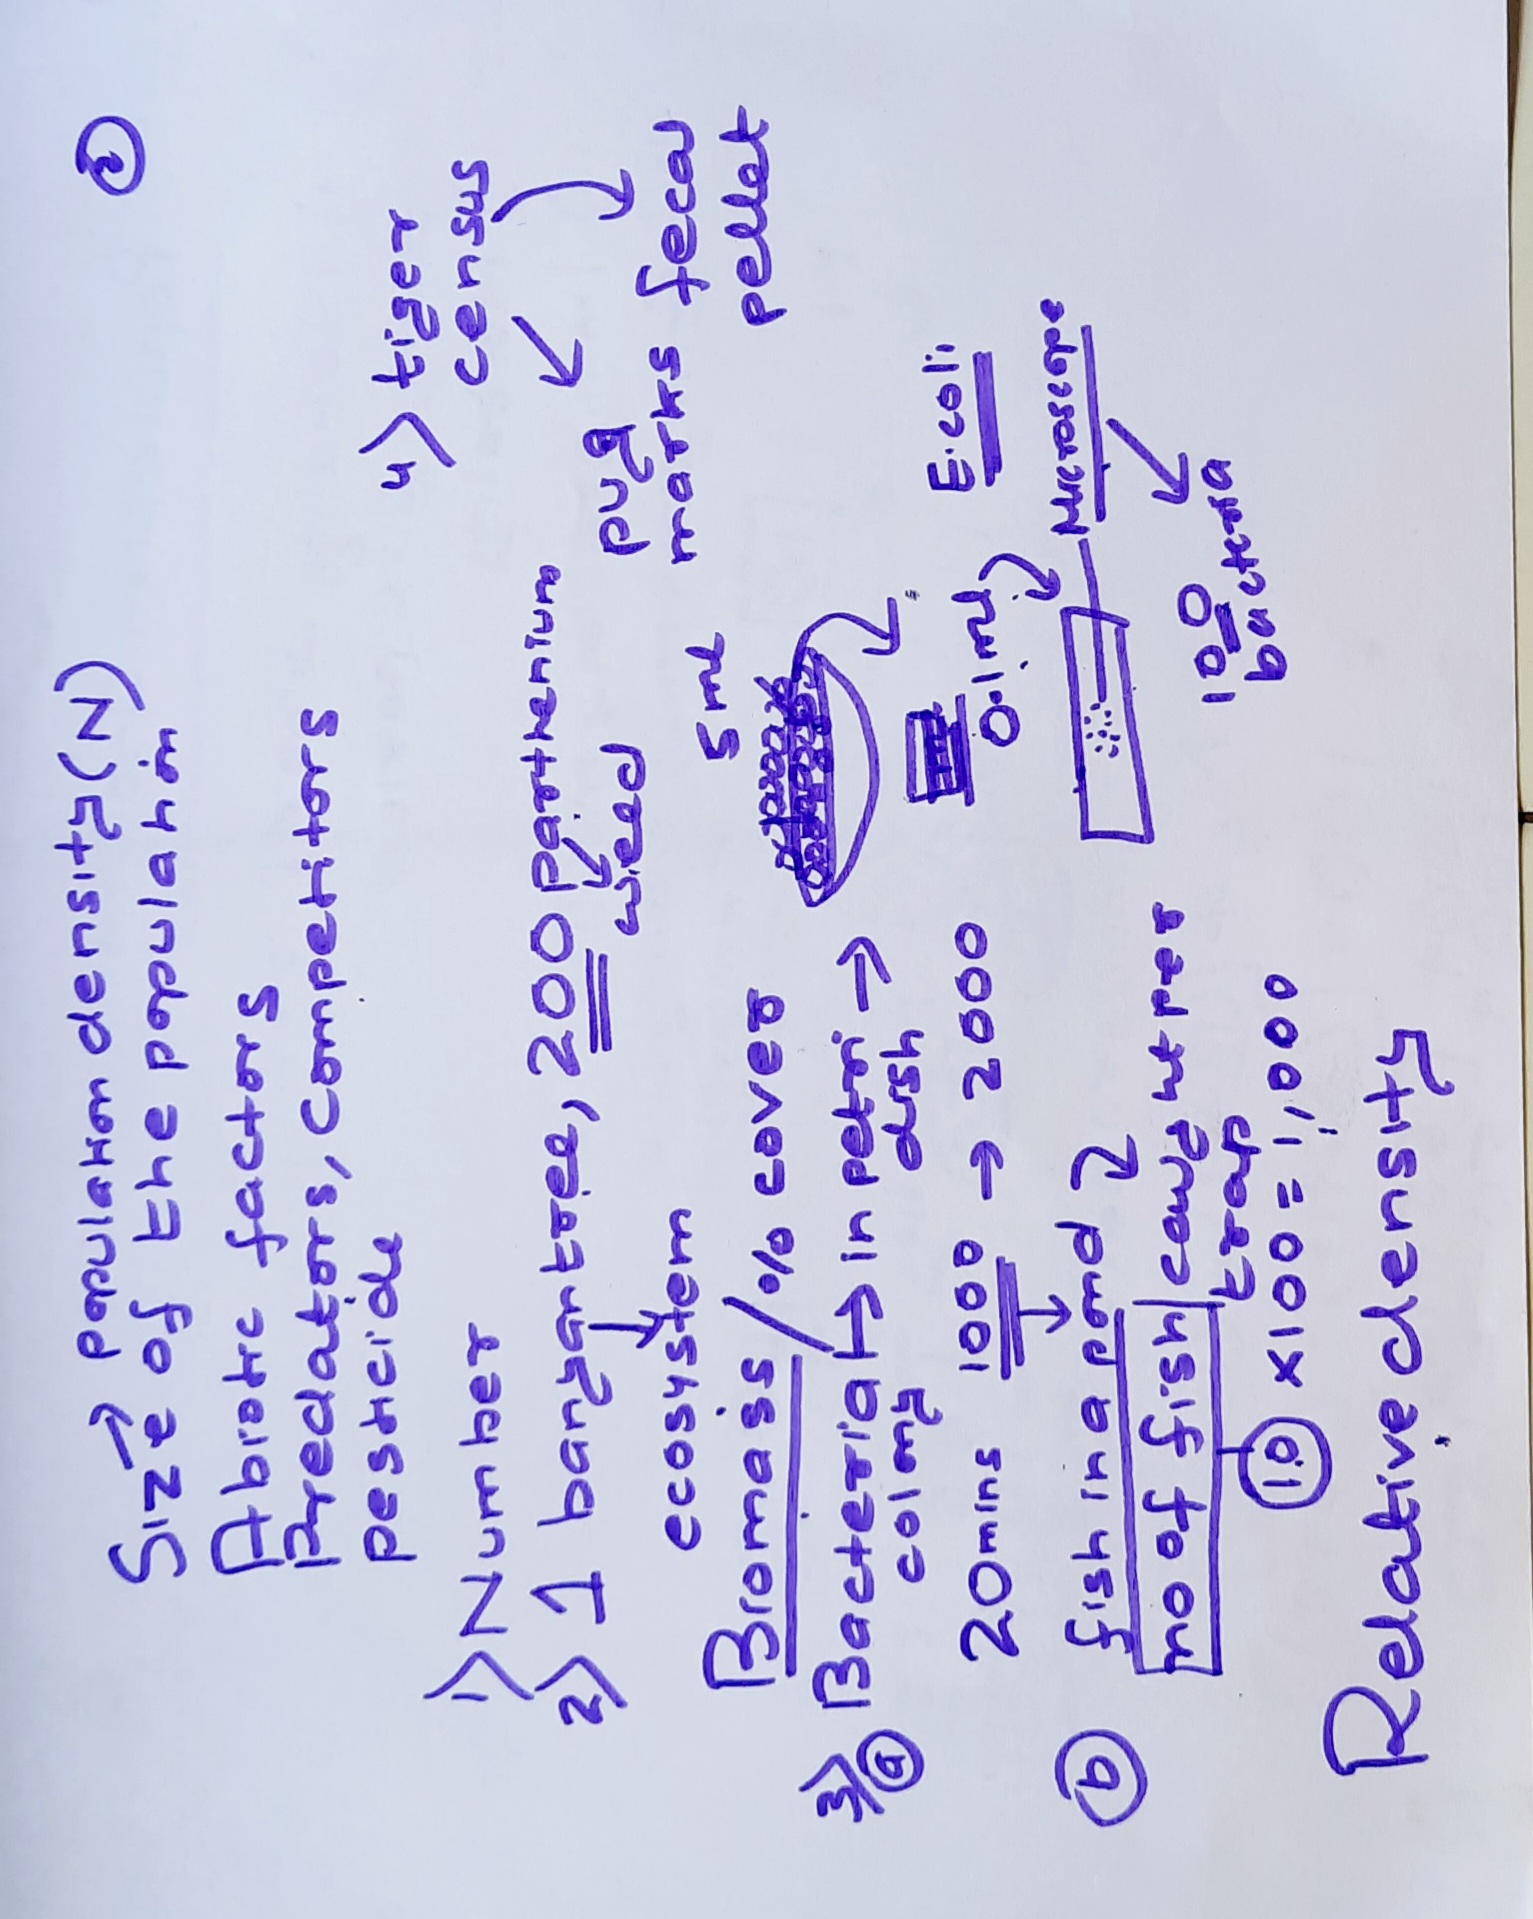 Size → population density (N)
of the population
②
Abiotic factors
Predators, Competitors
pesticide
1) Number
2) 1 banyan tree, 200 parthenium
weed
ecosystem
Biomass / % cover
4) tiger
census
pug
marks
fecal
pellet
3) a Bacterial → in petri →
colony
dish
5 ml
E.coli
20 mins 1000 → 2000
0.1 ml
Microscope
10
bacteria
b fish in a pond
no of fish / caught per
trap
10 x 100 = 1,000
Relative density